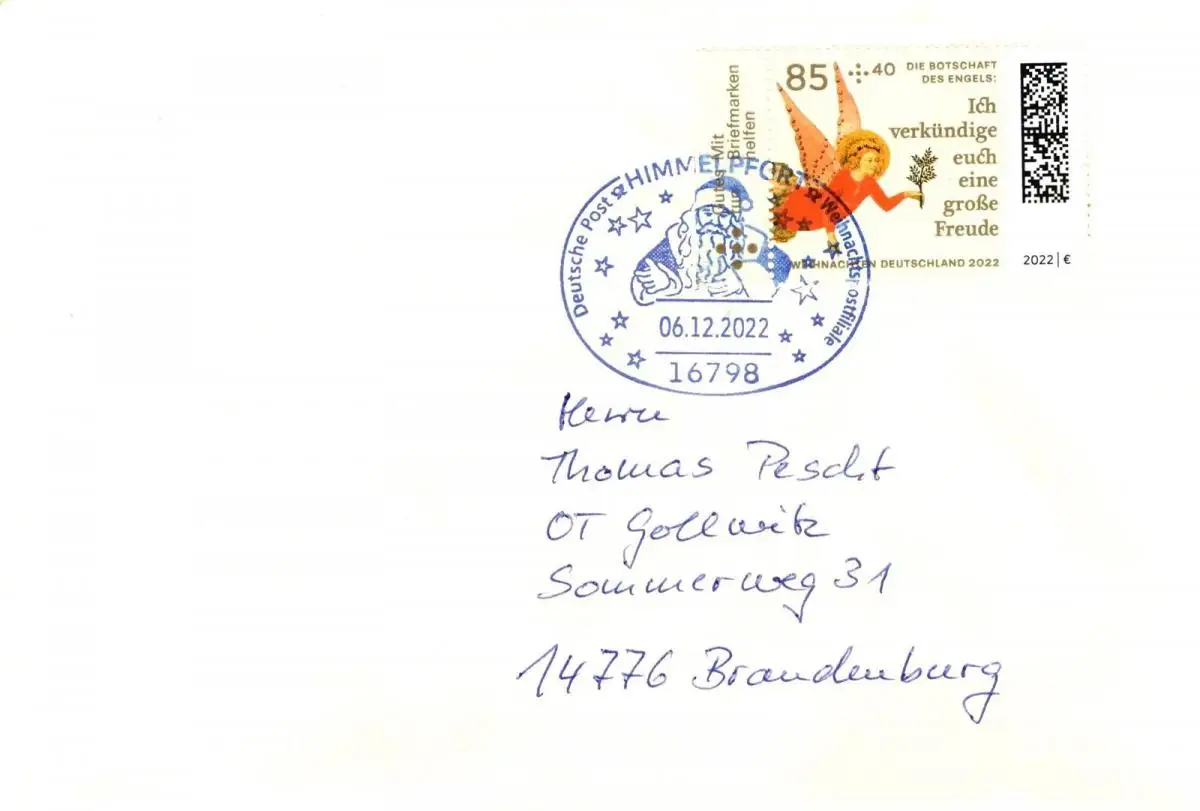 Gutes tun
Mit
Briefmarken
helfen
85 + 40
DIE BOTSCHAFT
DES ENGELS:
Ich
verkündige
euch
eine
große
Freude
WEIHNACHTEN DEUTSCHLAND 2022
2022 | €
Deutsche Post HIMMELPFORT Weihnachtspostfiliale
06.12.2022
16798
Herrn
Thomas Pescht
OT Gollwitz
Sommerweg 31
14776 Brandenburg